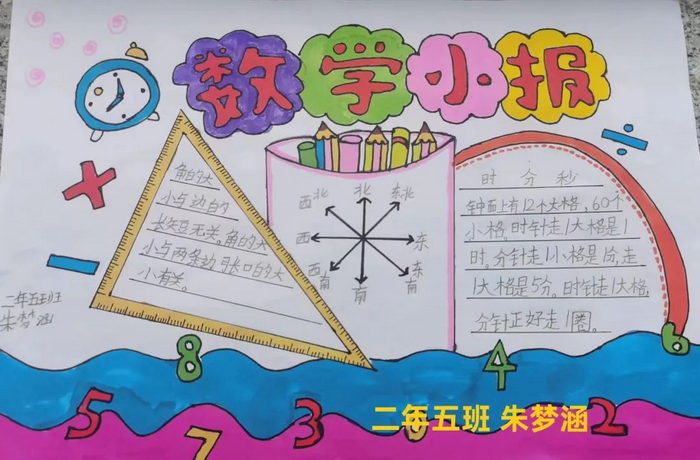 数学小报
角的大
小与边的
长短无关。角的大
小与两条边张口的大
小有关。
西北 北 东北
西 东
西南 南 东南
时 分 秒
钟面上有12个大格，60个
小格。时针走1大格是1
时。分针走1小格是1分，走
1大格是5分。时针走1大格，
分针正好走1圈。
二年五班
朱梦涵
8 4 6
5 7 3 2
二年五班 朱梦涵